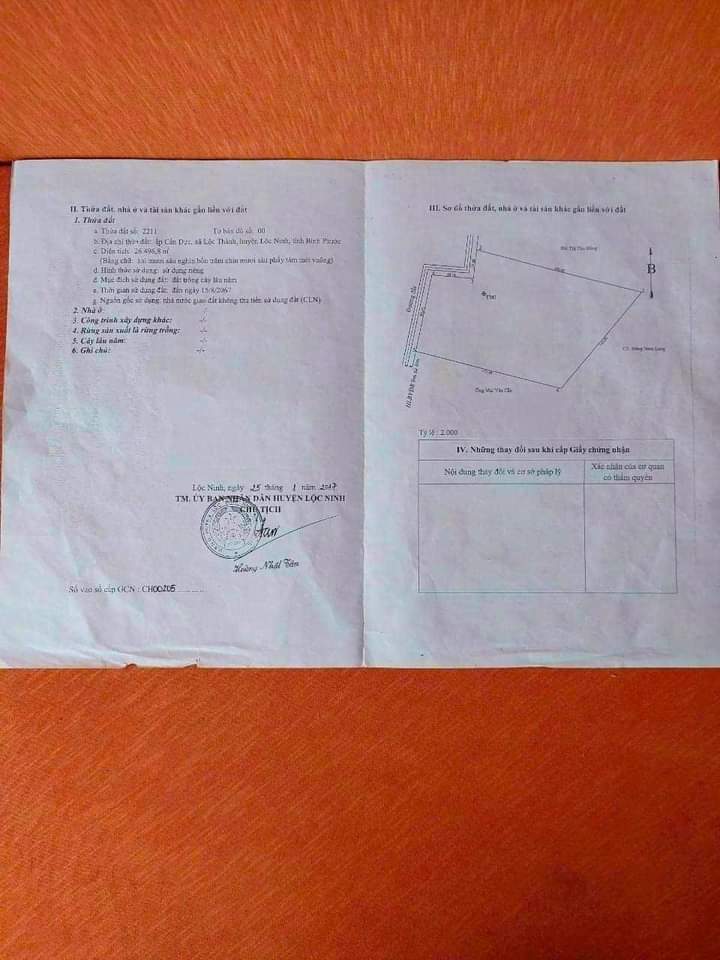 II. Thửa đất, nhà ở và tài sản khác gắn liền với đất
1. Thửa đất
a. Thửa đất số: 2211 Tờ bản đồ số: 00
b. Địa chỉ thửa đất: ấp Cần Dực, xã Lộc Thành, huyện Lộc Ninh, tỉnh Bình Phước
c. Diện tích: 26.496,8 m²
(Bằng chữ: hai mươi sáu nghìn bốn trăm chín mươi sáu phẩy tám mét vuông)
d. Hình thức sử dụng: sử dụng riêng
đ. Mục đích sử dụng đất: đất trồng cây lâu năm
e. Thời gian sử dụng đất: đến ngày 15/8/2067
g. Nguồn gốc sử dụng: nhà nước giao đất không thu tiền sử dụng đất (CLN)
2. Nhà ở: -/-
3. Công trình xây dựng khác: -/-
4. Rừng sản xuất là rừng trồng: -/-
5. Cây lâu năm: -/-
6. Ghi chú: -/-
Lộc Ninh, ngày 25 tháng 1 năm 2017
TM. ỦY BAN NHÂN DÂN HUYỆN LỘC NINH
CHỦ TỊCH
Hoàng Nhật Tân
Số vào sổ cấp GCN : CH00205
III. Sơ đồ thửa đất, nhà ở và tài sản khác gắn liền với đất
B
Đường đất
Ông Mai Văn
Tỷ lệ : 2.000
IV. Những thay đổi sau khi cấp Giấy chứng nhận
Nội dung thay đổi và cơ sở pháp lý
Xác nhận của cơ quan
có thẩm quyền